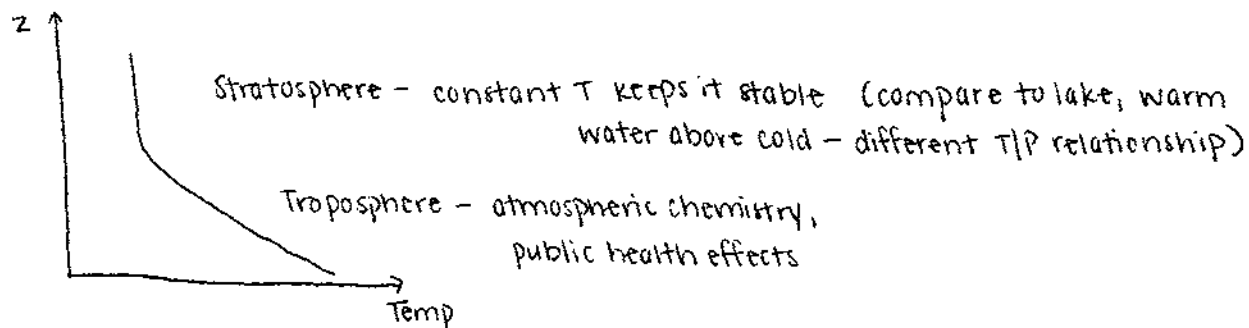 z
Stratosphere - constant T keeps it stable (compare to lake, warm
water above cold - different T/P relationship)
Troposphere - atmospheric chemistry,
public health effects
Temp